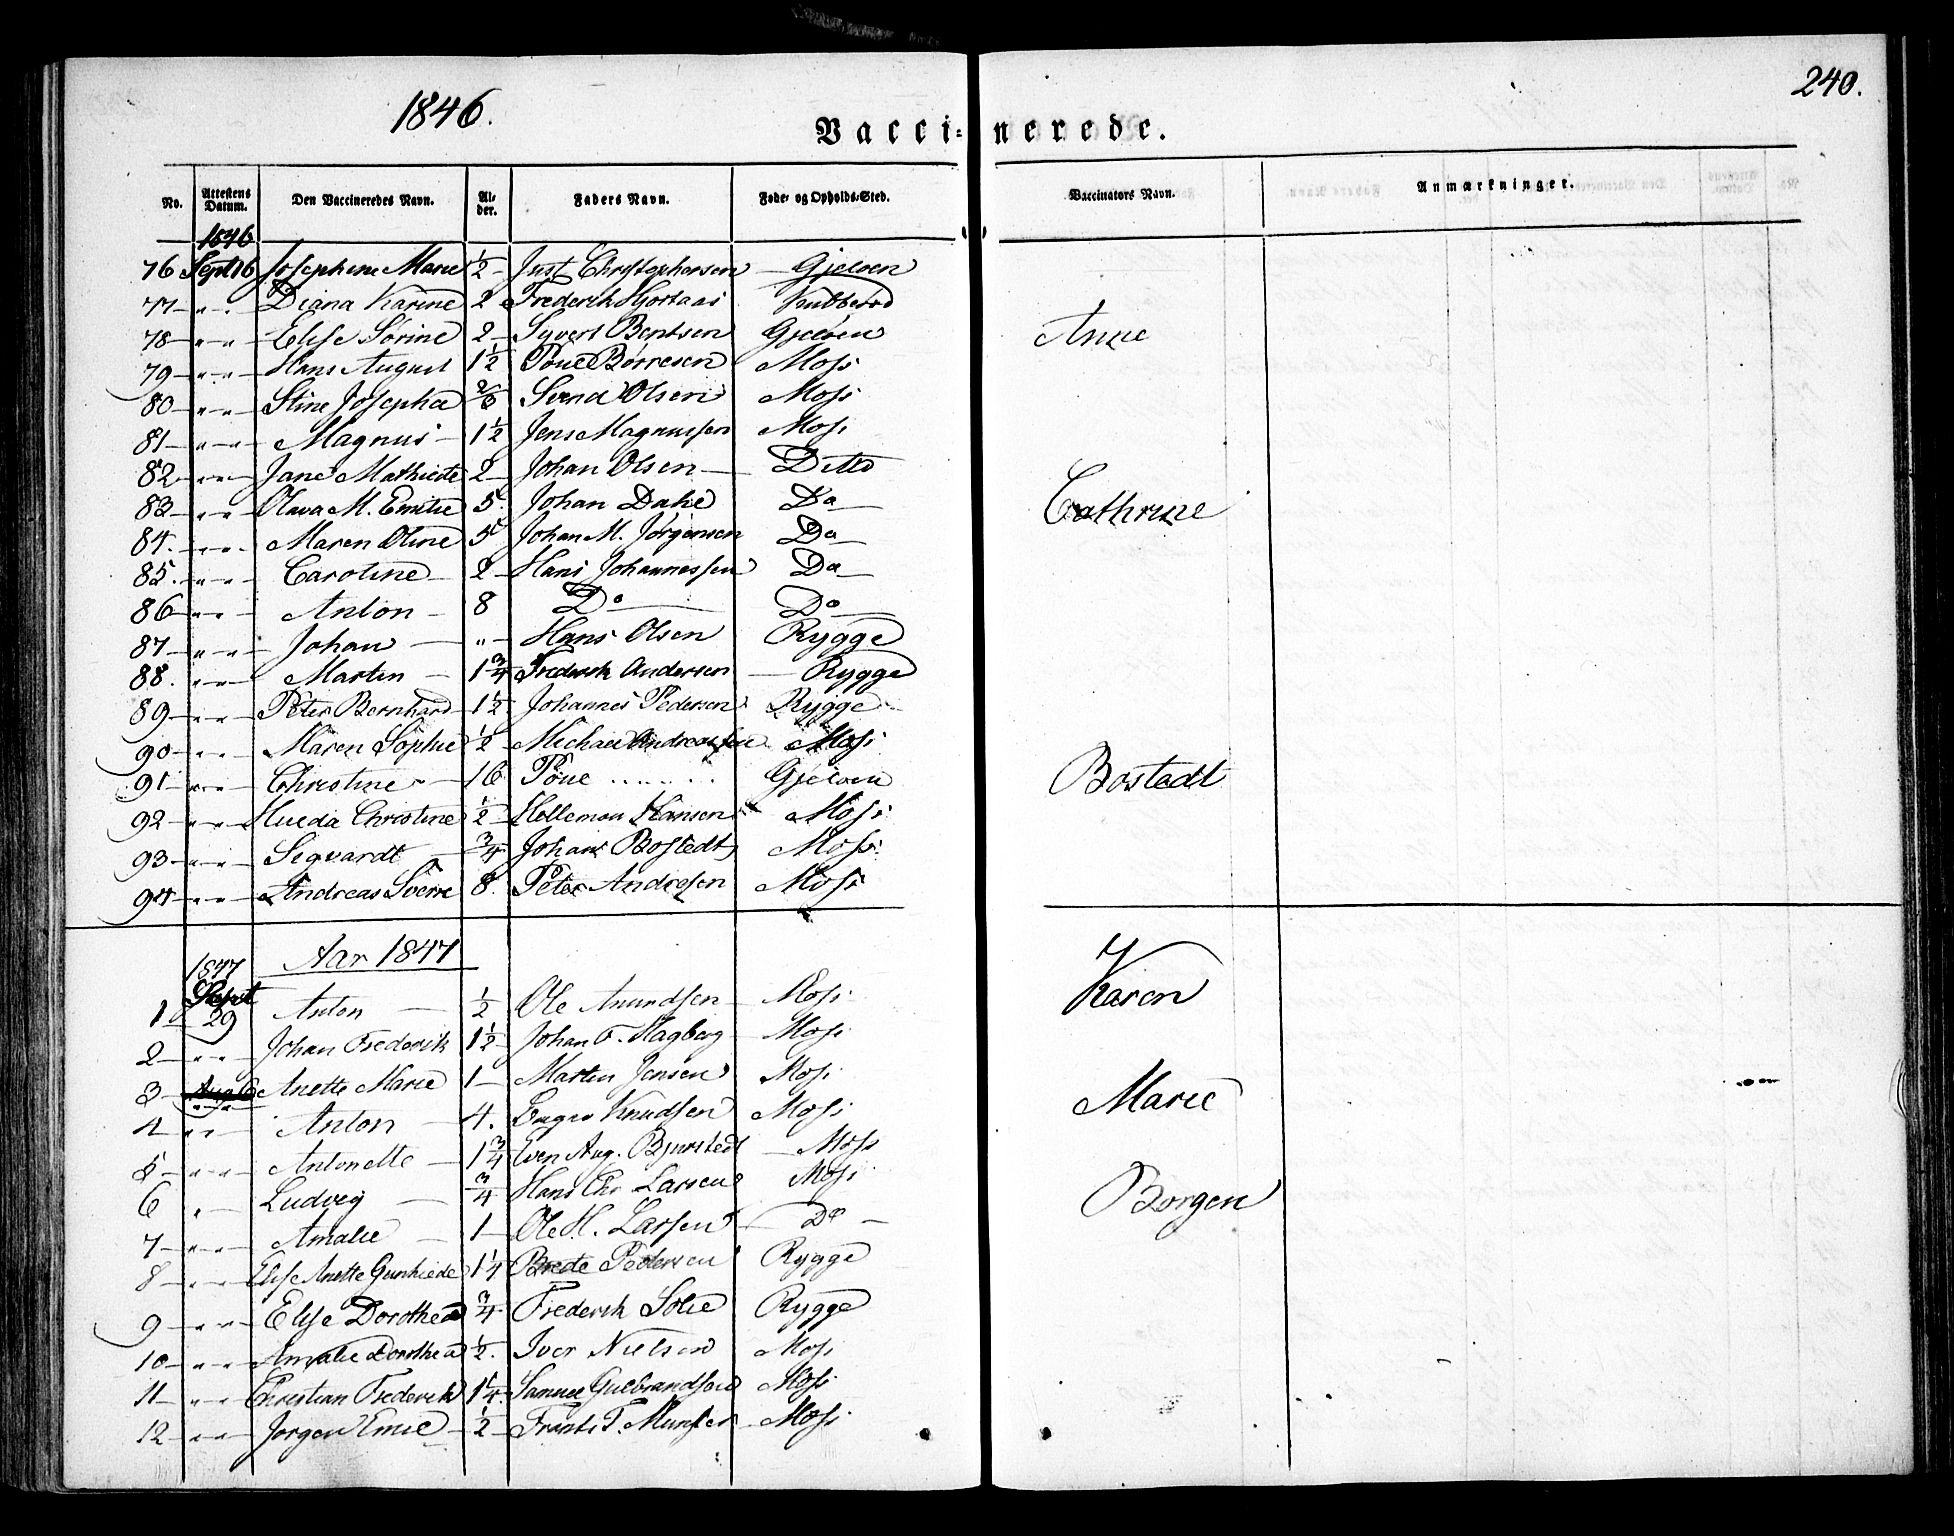 1846.
240.
Vacci=nerede.
No. Attestens Datum. Den Vaccineredes Navn. Al-der. Faders Navn. Føde- og Opholds-Sted. Vaccinators Navn. Anmærkninger.
1846
76 Sept 16 Josephine Marie ½ Just Christophersen Gjeloen
77 " " Diana Karine 2 Frederik Hjortaas
78 " " Elise Sørine 2 Syvert Bentsen Gjeloen Anne
79 " " Hans August 1½ Poul Børresen Moss
80 " " Stine Josepha Svend Olsen Moss
81 " " Magnus 1½ Jens Magnussen Moss
82 " " Jane Mathilde 2 Johan Olsen Ditto
83 " " Olava M. Emilie 5 Johan Dahl Do Cathrine
84. " " Maren Oline 5 Johan M. Jørgensen Do
85. " " Caroline 2 Hans Johannessen Do
86 " " Anton 8 Do Do
87 " " Johan " Hans Olsen Rygge
88. " " Martin 1¾ Frederik Andersen Rygge
89 " " Peter Bernhard 1½ Johannes Pedersen Rygge
90 " " Maren Sophie ½ Michael Andreassen Moss
91 " " Christine 16 Poul ....... Gjeloen Bostedt
92 " " Hulda Christine ½ Hansen Moss
93 " " Sigvardt ¾ Johan Bostedt Moss
94 " " Andreas 8. Peter Andresen Moss
Aar 1847
1847
1 Sept 29 Anton ½ Ole Amundsen Moss Karen
2 " " Johan Frederik 1½ Johan F. Hagberg Moss
3 " " Anette Marie 1 Martin Jensen Moss Marie
4 " " Anton 4. Knudsen Moss
5 " " Antonette 1¾ Even Aug. Bjurstedt Moss
6 " Ludvig ¾ Hans Chr Larsen Moss Borgen
7 " " Amalie 1 Ole H. Larsen Do
8 " " Elise Anette Gunhilde 1¼ Brede Pedersen Rygge
9 " " Elise Dorothea ¾ Frederik Solie Rygge
10 " " Amalie Dorothea ½. Iver Nielsen Moss
11 " " Christian Frederik 1¼. Samuel Gulbrandsen Moss
12 " " Jørgen Emil ½ Frants T. Munster Moss